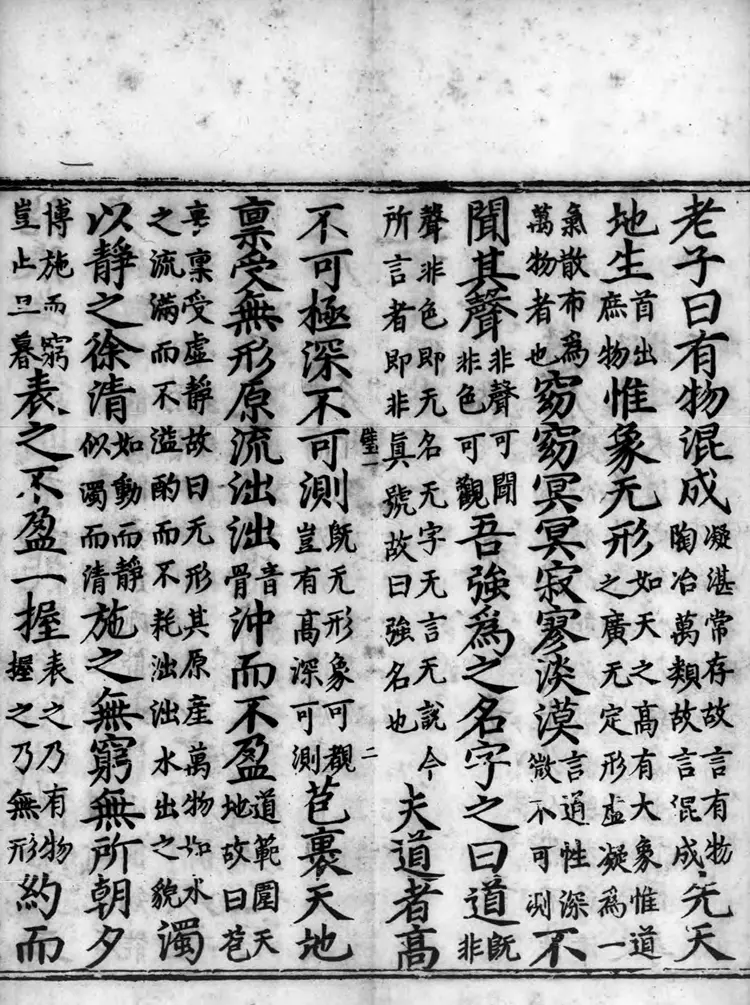 老子曰有物混成凝湛常存故言有物陶冶萬類故言混成先天
地生首出庶物惟象无形如天之高有大象惟道之廣无定形虛凝為一
氣散布為萬物者也窈窈冥冥寂寥淡漠言道性深微不可測不
聞其聲非聲可聞非色可觀吾強為之名字之曰道既非
聲非色即无名无字无言无說今所言者即非真號故曰強名也夫道者高
璧一 二
不可極深不可測既无形象可觀豈有高深可測苞裹天地
稟受無形原流泏泏音骨沖而不盈道範圍天地故曰苞
裹稟受虛靜故曰无形其原産萬物如水之流滿而不溢酌而不耗泏泏水出之貌濁
以靜之徐清如動而靜似濁而清施之無窮無所朝夕
博施而窮豈止旦暮表之不盈一握表之乃有物握之乃無形約而